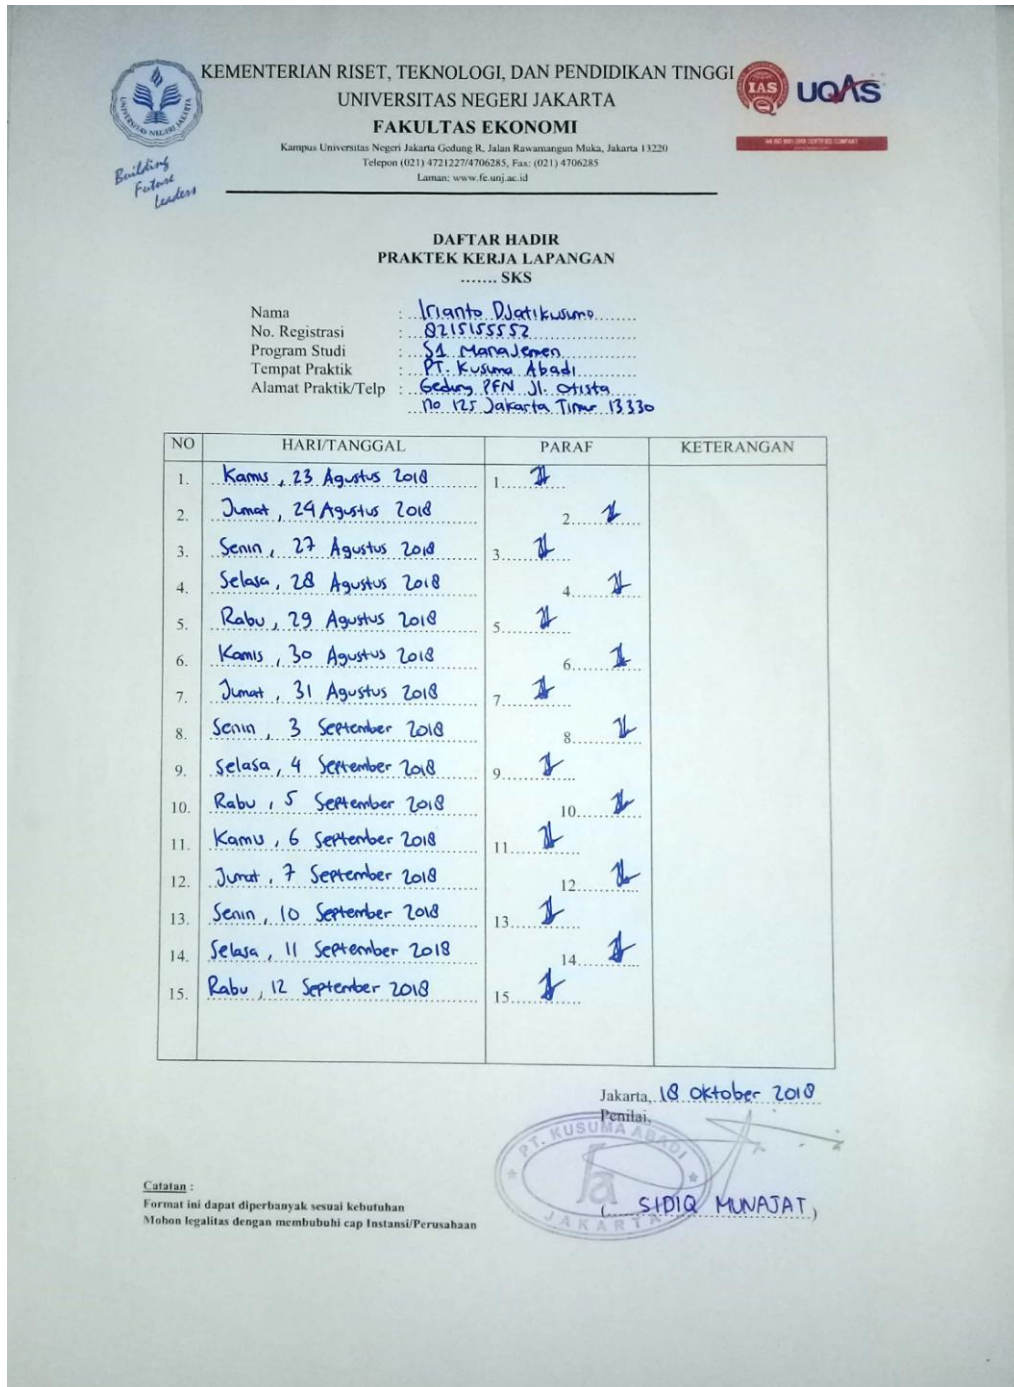 KEMENTERIAN RISET, TEKNOLOGI, DAN PENDIDIKAN TINGGI
UNIVERSITAS NEGERI JAKARTA
FAKULTAS EKONOMI
Kampus Universitas Negeri Jakarta Gedung R, Jalan Rawamangun Muka, Jakarta 13220
Telepon (021) 4721227/4706285, Fax: (021) 4706285
Laman: www.fe.unj.ac.id
UNIVERSITAS NEGERI JAKARTA
Building
Future
Leaders
IAS UQAS
AN ISO 9001:2008 CERTIFIED COMPANY
DAFTAR HADIR
PRAKTEK KERJA LAPANGAN
....... SKS
Nama : Irianto Djatikusumo
No. Registrasi : 8215155552
Program Studi : S1 Manajemen
Tempat Praktik : PT. Kusuma Abadi
Alamat Praktik/Telp : Gedung PFN Jl. Otista
no 125 Jakarta Timur 13330
NO HARI/TANGGAL PARAF KETERANGAN
1. Kamis, 23 Agustus 2018 1.
2. Jumat, 24 Agustus 2018 2.
3. Senin, 27 Agustus 2018 3.
4. Selasa, 28 Agustus 2018 4.
5. Rabu, 29 Agustus 2018 5.
6. Kamis, 30 Agustus 2018 6.
7. Jumat, 31 Agustus 2018 7.
8. Senin, 3 September 2018 8.
9. Selasa, 4 September 2018 9.
10. Rabu, 5 September 2018 10.
11. Kamis, 6 September 2018 11.
12. Jumat, 7 September 2018 12.
13. Senin, 10 September 2018 13.
14. Selasa, 11 September 2018 14.
15. Rabu, 12 September 2018 15.
Jakarta, 18 Oktober 2018
Penilai,
PT. KUSUMA ABADI
JAKARTA
(SIDIQ MUNAJAT)
Catatan :
Format ini dapat diperbanyak sesuai kebutuhan
Mohon legalitas dengan membubuhi cap Instansi/Perusahaan